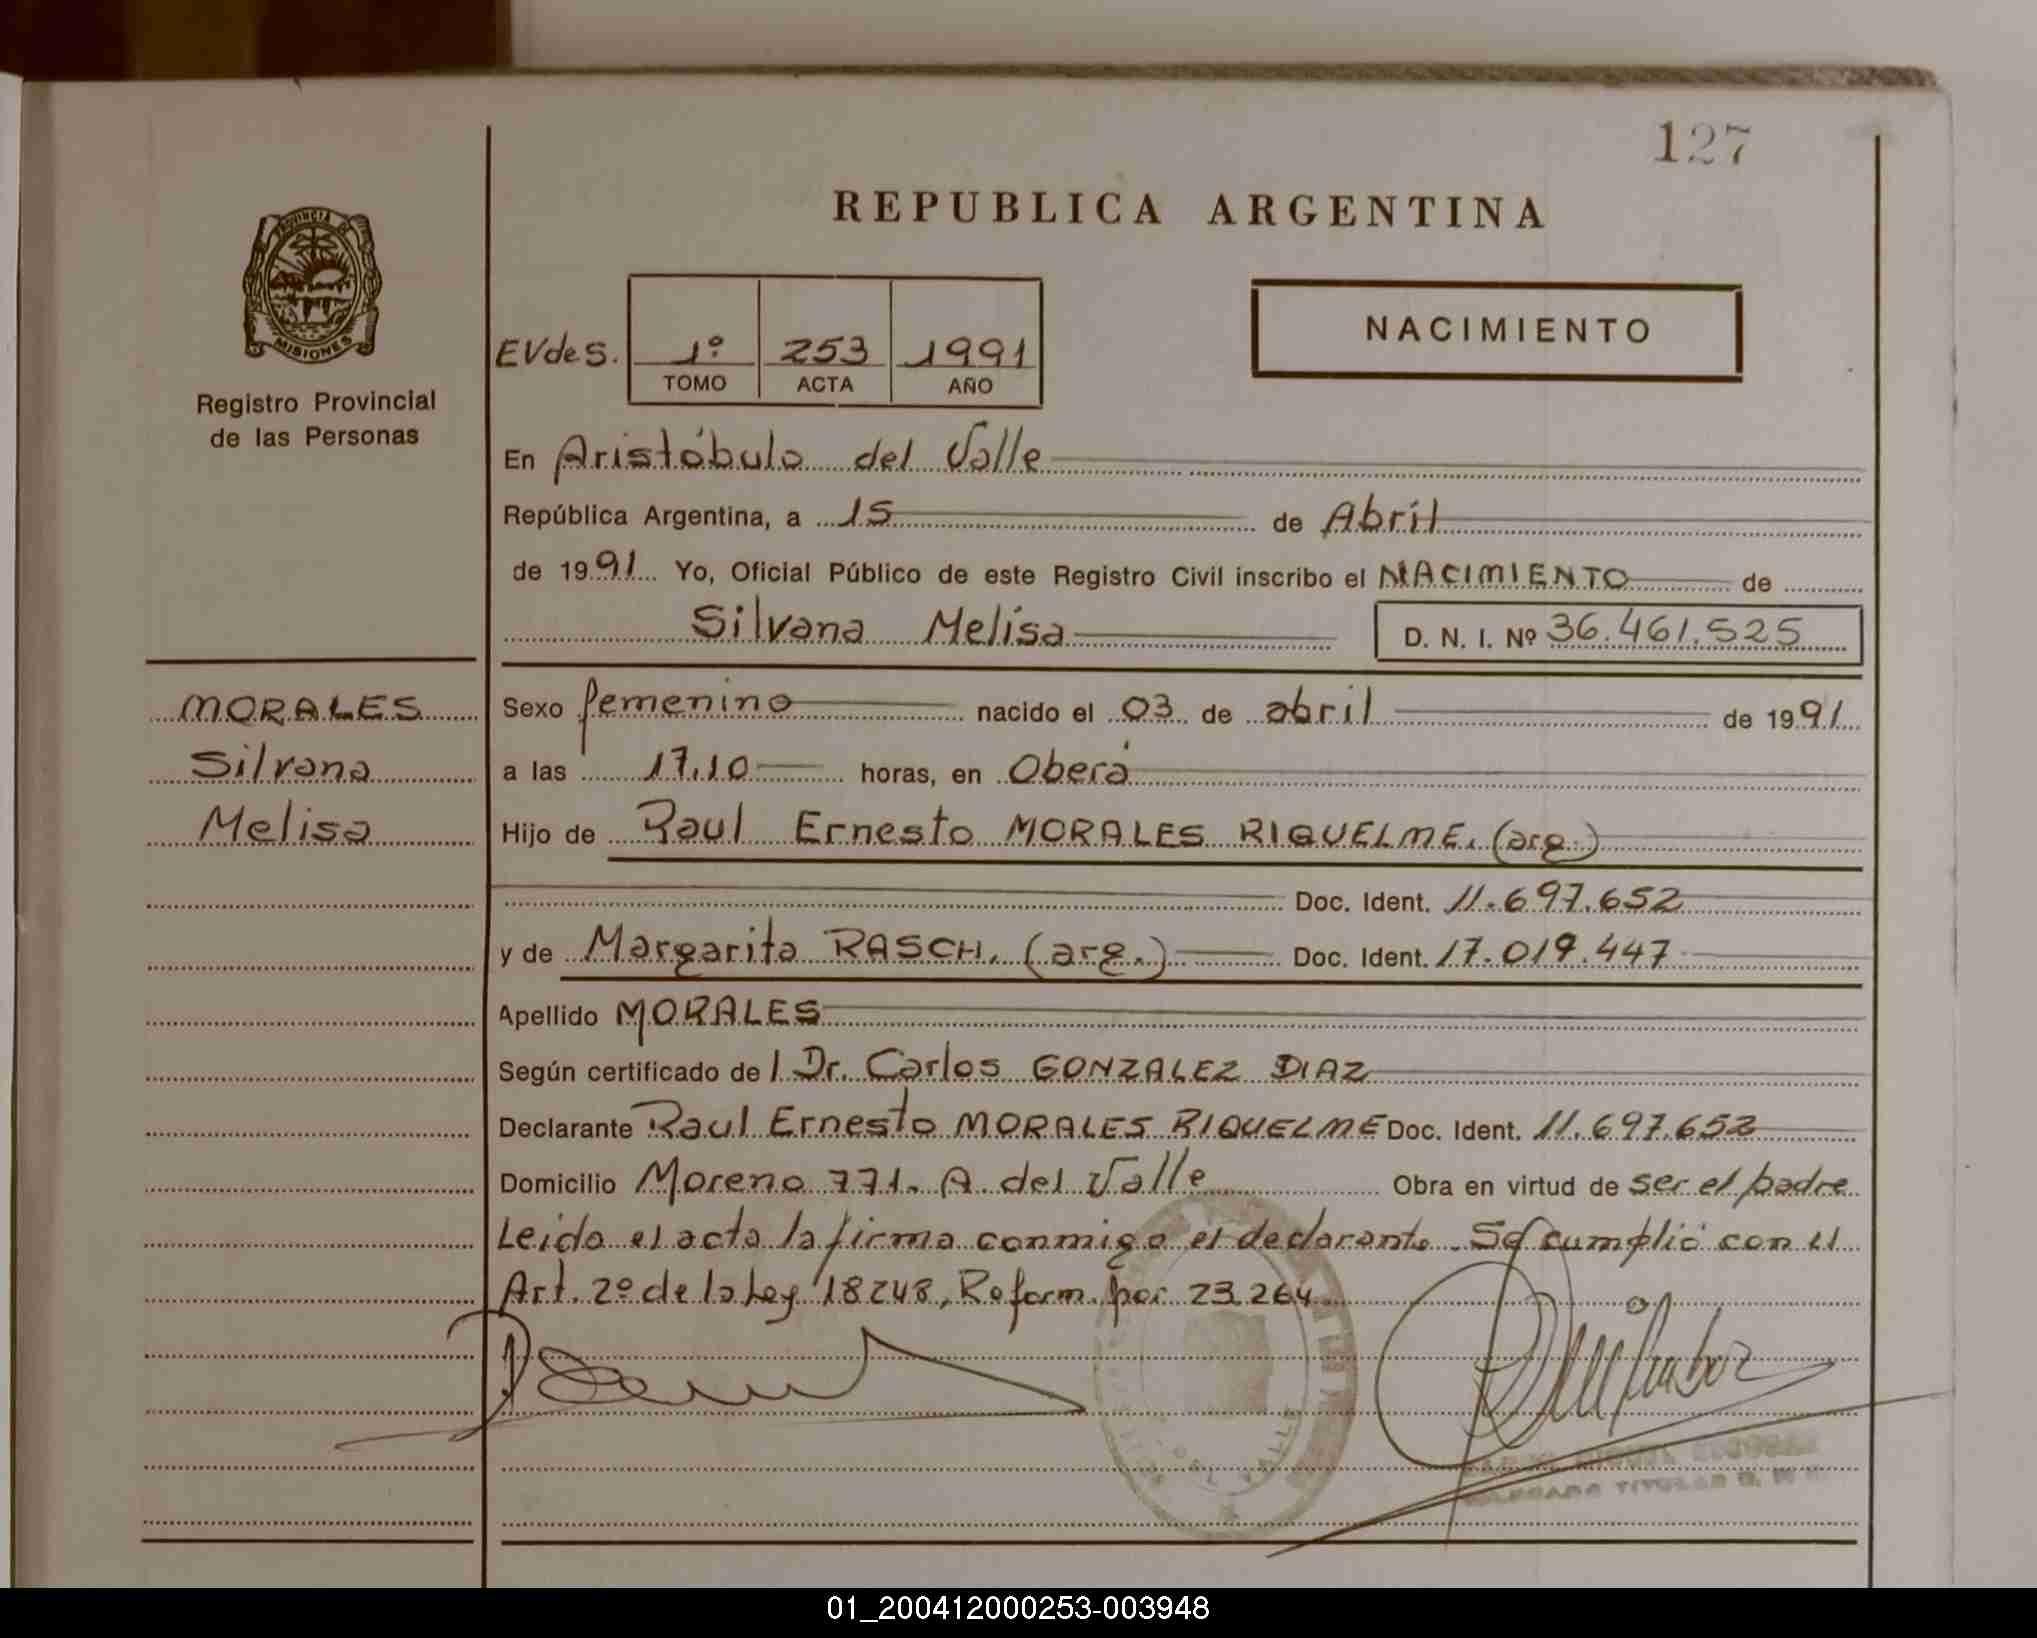 127
REPUBLICA ARGENTINA
PROVINCIA DE
MISIONES
Registro Provincial
de las Personas
NACIMIENTO
EVdes. 1º 253 1991
TOMO ACTA AÑO
En Aristóbulo del Valle
República Argentina, a 15 de Abril
de 1991 Yo, Oficial Público de este Registro Civil inscribo el NACIMIENTO de
Silvana Melisa D. N. I. Nº 36.461.525
MORALES
Silvana
Melisa
Sexo femenino nacido el 03 de abril de 1991
a las 17.10 horas, en Oberá
Hijo de Raul Ernesto MORALES RIQUELME. (arg.)
Doc. Ident. 11.697.652
y de Margarita RASCH. (arg.) Doc. Ident. 17.019.447
Apellido MORALES
Según certificado de l Dr. Carlos GONZALEZ DIAZ
Declarante Raul Ernesto MORALES RIQUELME Doc. Ident. 11.697.652
Domicilio Moreno 771. A. del Valle Obra en virtud de ser el padre
Leida el acta la firma conmigo el declarante. Se cumplió con el
Art. 2º de la Ley 18248, Reform. por 23.264.
DEL VALLE
TITULAR
01_200412000253-003948